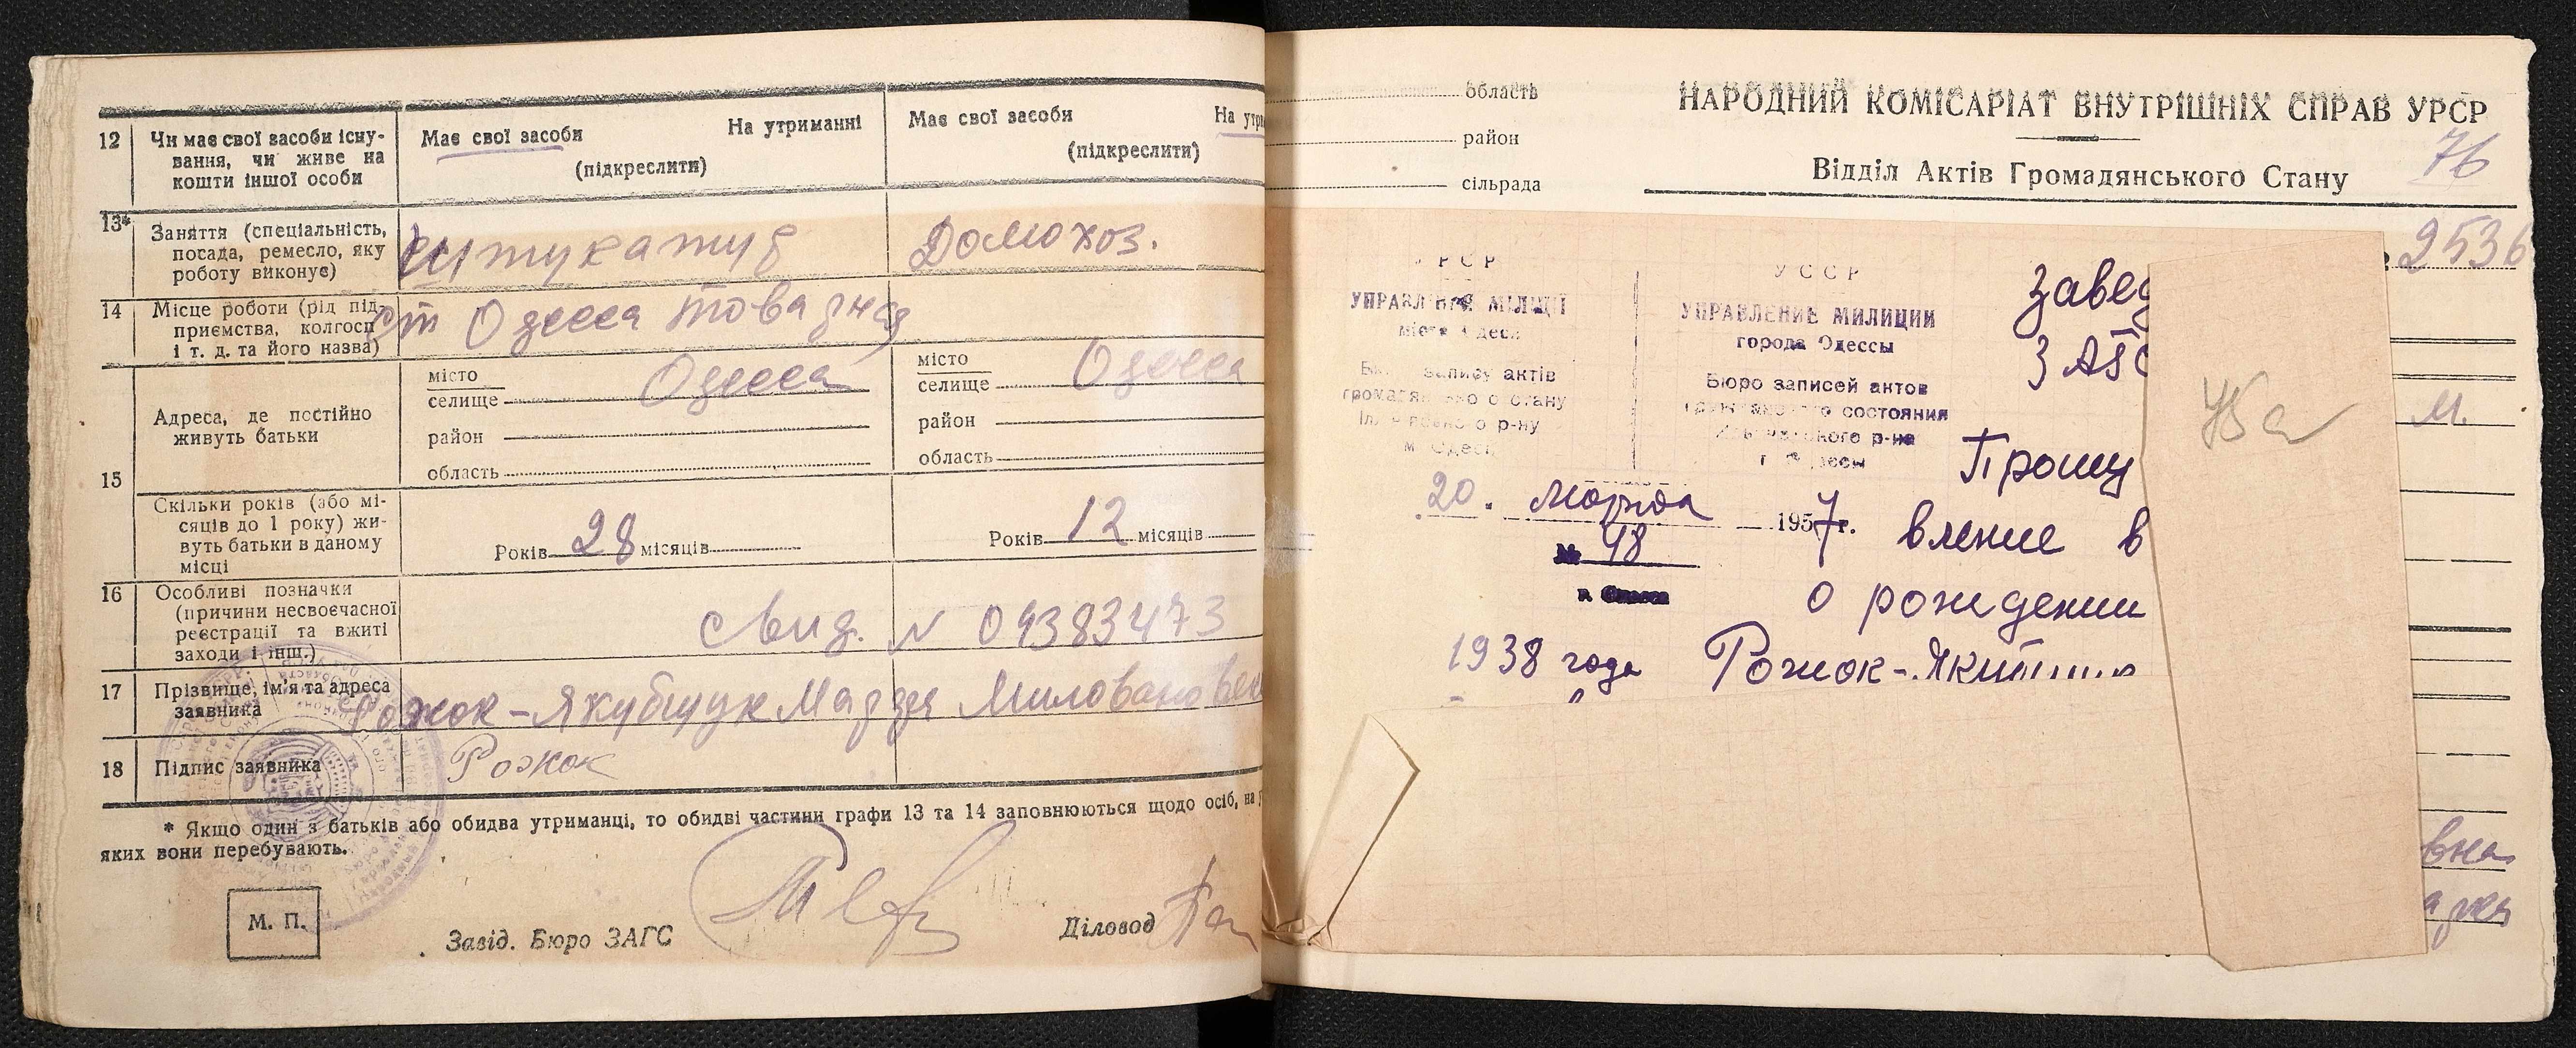 12 Чи має свої засоби існу-
вання, чи живе на
кошти іншої особи
Має свої засоби На утриманні
(підкреслити)
Має свої засоби На утри
(підкреслити)
13* Заняття (спеціальність,
посада, ремесло, яку
роботу виконує)
штукатур
Домохоз.
14 Місце роботи (рід під-
приємства, колгосп
і т. д. та його назва)
ст Одесса товарная
15 Адреса, де постійно
живуть батьки
місто
селище Одесса
район
область
місто
селище Одесса
район
область
Скільки років (або мі-
сяців до 1 року) жи-
вуть батьки в даному
місці
Років 28 місяців
Років 12 місяців
16 Особливі позначки
(причини несвоєчасної
реєстрації та вжиті
заходи і інш.)
свид. N 04383473
17 Прізвище, ім'я та адреса
заявника
Рожок-Якубщук Мария Миловановен
18 Підпис заявника
Рожок
* Якщо один з батьків або обидва утриманці, то обидві частини графи 13 та 14 заповнюються щодо осіб, на
яких вони перебувають.
М. П.
Завід. Бюро ЗАГС
Діловод
область
район
сільрада
НАРОДНИЙ КОМІСАРІАТ ВНУТРІШНІХ СПРАВ УРСР
Відділ Актів Громадянського Стану
76
2536
м.
УРСР
УПРАВЛІННЯ МІЛІЦІЇ
міста Одеси
Бюро запису актів
громадянського стану
р-ну
м. Одеси
УССР
УПРАВЛЕНИЕ МИЛИЦИИ
города Одессы
Бюро записей актов
гражданского состояния
р-на
г. Одессы
20. марта 1957 г.
№ 48
г. Одесса
Завед
ЗАГС
Прошу
вление в
о рождении
1938 года Рожок-Якубщ
75а
вна